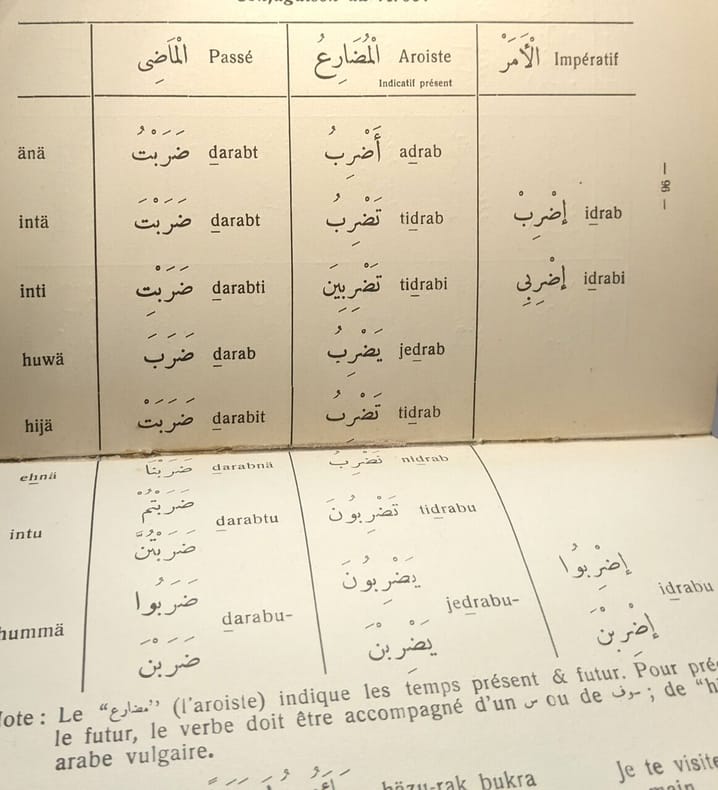 الْمَاضِى Passé الْمُضَارِعُ Aroiste الْأَمَرْ Impératif
Indicatif présent
änä ضَرَبْتُ darabt أَضْرِبُ adrab
— 96 —
intä ضَرَبْتَ darabt تَضْرِبُ tidrab إضْرِبْ idrab
inti ضَرَبْتِ darabti تَضْرِبِينَ tidrabi إضْرِبِي idrabi
huwä ضَرَبَ darab يَضْرِبُ jedrab
hijä ضَرَبَتْ darabit تَضْرِبُ tidrab
ehnä ضَرَبْنَا darabnä نَضْرِبُ nidrab
ضَرَبْتُمْ
intu darabtu تَضْرِبُونَ tidrabu
ضَرَبْتُنَّ
ضَرَبُوا يَضْرِبُونَ إضْرِبُوا
hummä darabu- jedrabu- idrabu
ضَرَبْنَ يَضْرِبْنَ إضْرِبْنَ
Note : Le “مضارع” (l'aroiste) indique les temps présent & futur. Pour
le futur, le verbe doit être accompagné d'un س ou de سوف ; de
arabe vulgaire.
häzu-rak bukra Je te visite
main